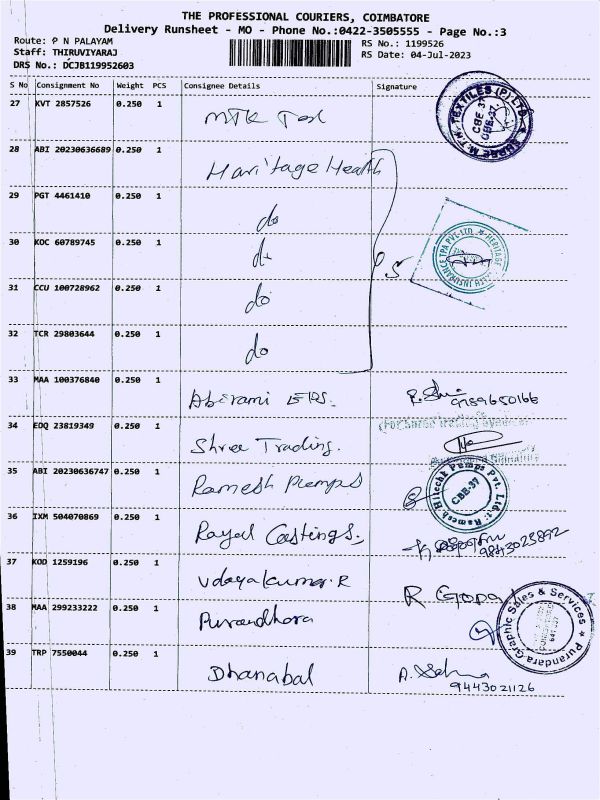 THE PROFESSIONAL COURIERS, COIMBATORE
Delivery Runsheet - MO - Phone No.:0422-3505555 - Page No.:3
Route: P N PALAYAM
RS No.: 1199526
Staff: THIRUVIYARAJ
RS Date: 04-Jul-2023
DRS No.: DCJB119952603
S No Consignment No Weight PCS Consignee Details Signature
27 KVT 2857526 0.250 1
MTK Tex
TEXTILES (P) LTD.
CBE-37.
28 ABI 20230636689 0.250 1 Haritage Health
29 PGT 4461410 0.250 1 do
30 KOC 60789745 0.250 1 do
HERITAGE HEALTH INSURANCE TPA PVT.LTD.
31 CCU 100728962 0.250 1 do
32 TCR 29803644 0.250 1 do
33 MAA 100376840 0.250 1 Abirami ERS.
9789650166
34 EDQ 23819349 0.250 1 Shree Trading.
35 ABI 20230636747 0.250 1 Ramesh Pumps
Ramesh Hitechk Pumps Pvt. Ltd.
CBE-37
36 IXM 504070869 0.250 1 Royal Castings,
9843025892
37 KOD 1259196 0.250 1 Udayakumar.R R Gopa
38 MAA 299233222 0.250 1 Purandhara
Purandara Graphic Sales & Services
39 TRP 7550044 0.250 1 Dhanabal
9443021126